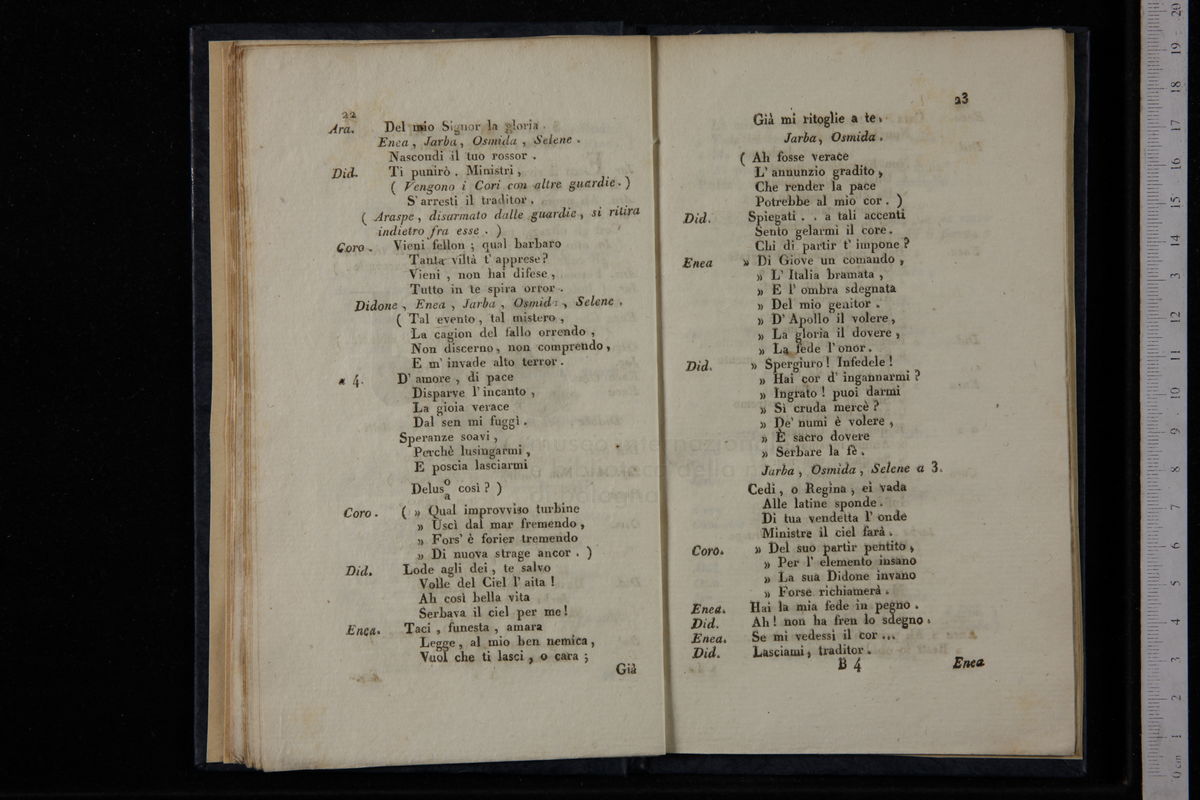 22
Ara. Del mio Signor la gloria.
Enea, Jarba, Osmida, Selene.
Nascondi il tuo rossor.
Did. Ti punirò. Ministri,
( Vengono i Cori con altre guardie. )
S'arresti il traditor.
( Araspe, disarmato dalle guardie, si ritira
indietro fra esse. )
Coro. Vieni fellon; qual barbaro
Tanta viltà t'apprese?
Vieni, non hai difese,
Tutto in te spira orror.
Didone, Enea, Jarba, Osmida, Selene.
( Tal evento, tal mistero,
La cagion del fallo orrendo,
Non discerno, non comprendo,
E m'invade alto terror.
a 4. D'amore, di pace
Disparve l'incanto,
La gioia verace
Dal sen mi fuggì.
Speranze soavi,
Perchè lusingarmi,
E poscia lasciarmi
Delus o a così? )
Coro. ( » Qual improvviso turbine
» Uscì dal mar fremendo,
» Fors'è forier tremendo
» Di nuova strage ancor. )
Did. Lode agli dei, te salvo
Volle del Ciel l'aita!
Ah così bella vita
Serbava il ciel per me!
Enea. Taci, funesta, amara
Legge, al mio ben nemica,
Vuol che ti lasci, o cara;
Già
23
Già mi ritoglie a te.
Jarba, Osmida.
( Ah fosse verace
L'annunzio gradito,
Che render la pace
Potrebbe al mio cor. )
Did. Spiegati . . a tali accenti
Sento gelarmi il core.
Chi di partir t'impone?
Enea » Di Giove un comando,
» L'Italia bramata,
» E l'ombra sdegnata
» Del mio genitor.
» D'Apollo il volere,
» La gloria il dovere,
» La fede l'onor.
Did. » Spergiuro! Infedele!
» Hai cor d'ingannarmi?
» Ingrato! puoi darmi
» Sì cruda mercè?
» De' numi è volere,
» È sacro dovere
» Serbare la fè.
Jarba, Osmida, Selene a 3.
Cedi, o Regina, ei vada
Alle latine sponde.
Di tua vendetta l'onde
Ministre il ciel farà.
Coro. » Del suo partir pentito,
» Per l'elemento insano
» La sua Didone invano
» Forse richiamerà.
Enea. Hai la mia fede in pegno.
Did. Ah! non ha fren lo sdegno.
Enea. Se mi vedessi il cor ...
Did. Lasciami, traditor.
B 4 Enea